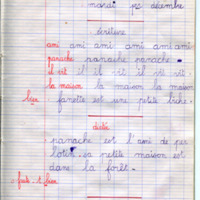 mardi 1er décembre
écriture
ami ami ami ami ami ami
panache panache panache
il est il il est il est vit
la maison la maison la maison
bien fanette est une petite biche.
dictée
panache est l'ami de per
lotte. sa petite maison est
dans la forêt.
bien